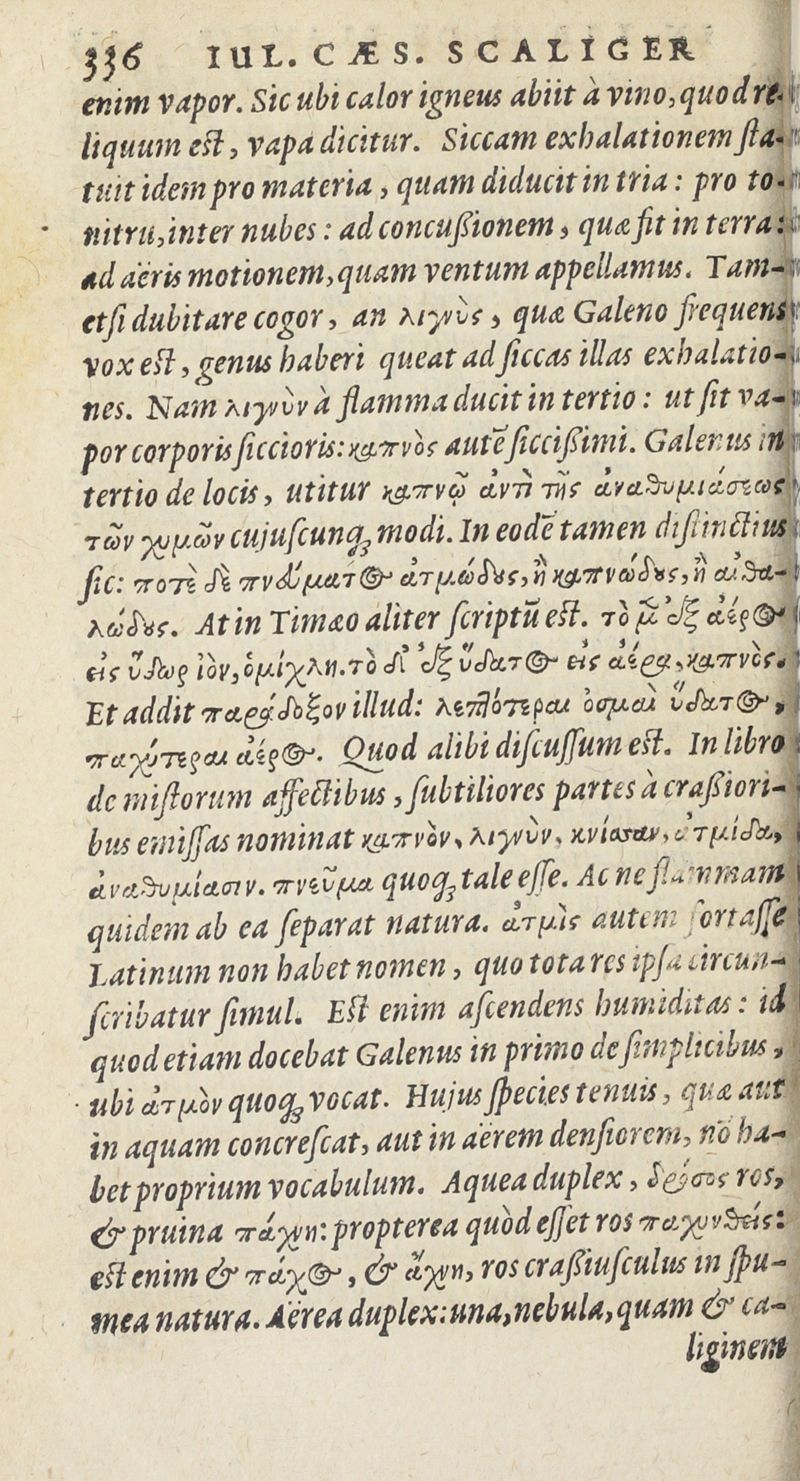 336 IUL. CÆS. SCALIGER
enim vapor. Sic ubi calor igneus abiit à vino, quod re-
liquum est, vapa dicitur. Siccam exhalationem sta-
tuit idem pro materia, quam diducit in tria: pro to-
nitru, inter nubes: ad concußionem, quæ fit in terra:
ad aëris motionem, quam ventum appellamus. Tam-
etsi dubitare cogor, an λιγνὺς, quæ Galeno frequens
vox est, genus haberi queat ad siccas illas exhalatio-
nes. Nam λιγνὺν à flamma ducit in tertio: ut sit va-
por corporis siccioris: καπνὸς autē siccißimi. Galenus in
tertio de locis, utitur καπνῷ ἀντὶ τῆς ἀναθυμιάσεως
τῶν χυμῶν cujuscunq; modi. In eodē tamen distinctius
sic: ποτὲ δὲ πνεύματος ἀτμώδους, ἢ καπνώδους, ἢ αἰθα-
λώδους. At in Timæo aliter scriptū est. τὸ μ̃ ἐξ ἀέρος
εἰς ὕδωρ ἰὸν, ὁμίχλη. τὸ δ' ἐξ ὕδατος εἰς ἀέρα, καπνός.
Et addit παράδοξον illud: λεπτότεραι ὀσμαὶ ὕδατος,
παχύτεραι ἀέρος. Quod alibi discussum est. In libro
de mistorum affectibus, subtiliores partes à craßiori-
bus emissas nominat καπνὸν, λιγνὺν, κνίσσαν, ἀτμίδα,
ἀναθυμίασιν. πνεῦμα quoq; tale esse. Ac ne flammam
quidem ab ea separat natura. ἀτμὶς autem fortasse
Latinum non habet nomen, quo tota res ipsa circun-
scribatur simul. Est enim ascendens humiditas: id
quod etiam docebat Galenus in primo de simplicibus,
ubi ἀτμὸν quoq; vocat. Hujus species tenuis, quæ aut
in aquam concrescat, aut in aërem densiorem, nō ha-
bet proprium vocabulum. Aquea duplex, δρόσος ros,
& pruina πάχνη: propterea quòd esset ros παχυνθείς:
est enim & πάχος, & ἄχνη, ros craßiusculus in spu-
mea natura. Aërea duplex: una, nebula, quam & ca-
liginem